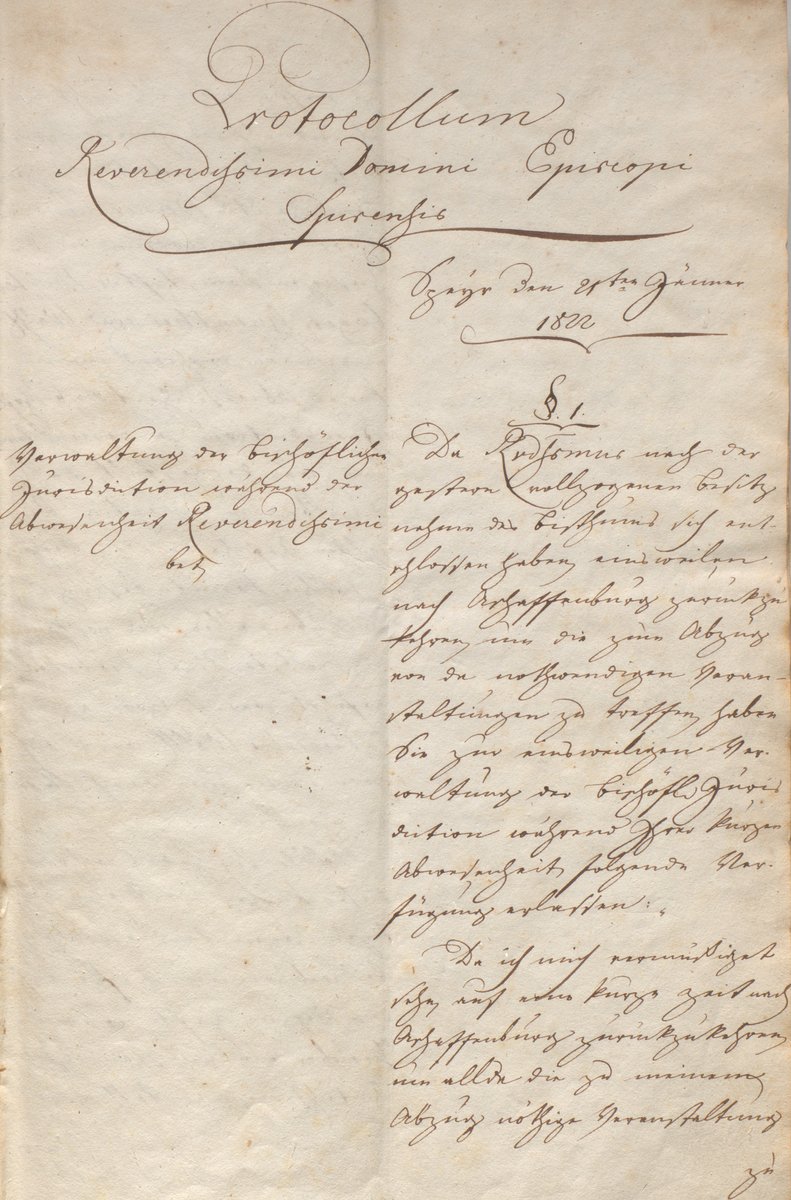 Protocollum
Reverendissimi Domini Episcopi
Spirensis
Speyr den 21ten Jänner
1822
§. 1.
Verwaltung der bischöflichen
Jurisdiction während der
Abwesenheit Reverendissimi
bet.
Da Rvdssmus nach der
gestern vollzogenen Besitz
nahme des Bisthums sich ent-
schlossen haben, einsweilen
nach Aschaffenburg zurückzu
kehren, um die zum Abzug
von da nothwendigen Veran-
staltungen zu treffen, haben
Sie zur einsweiligen Ver-
waltung der bischöfl. Juris
diction während Ihrer kurzen
Abwesenheit, folgende Ver-
fügung erlassen:
Da ich mich vermüßiget
sehe, auf eine kurze Zeit nach
Aschaffenburg zurückzukehren,
um allda die zu meinem
Abzug nöthige Veranstaltung
zu